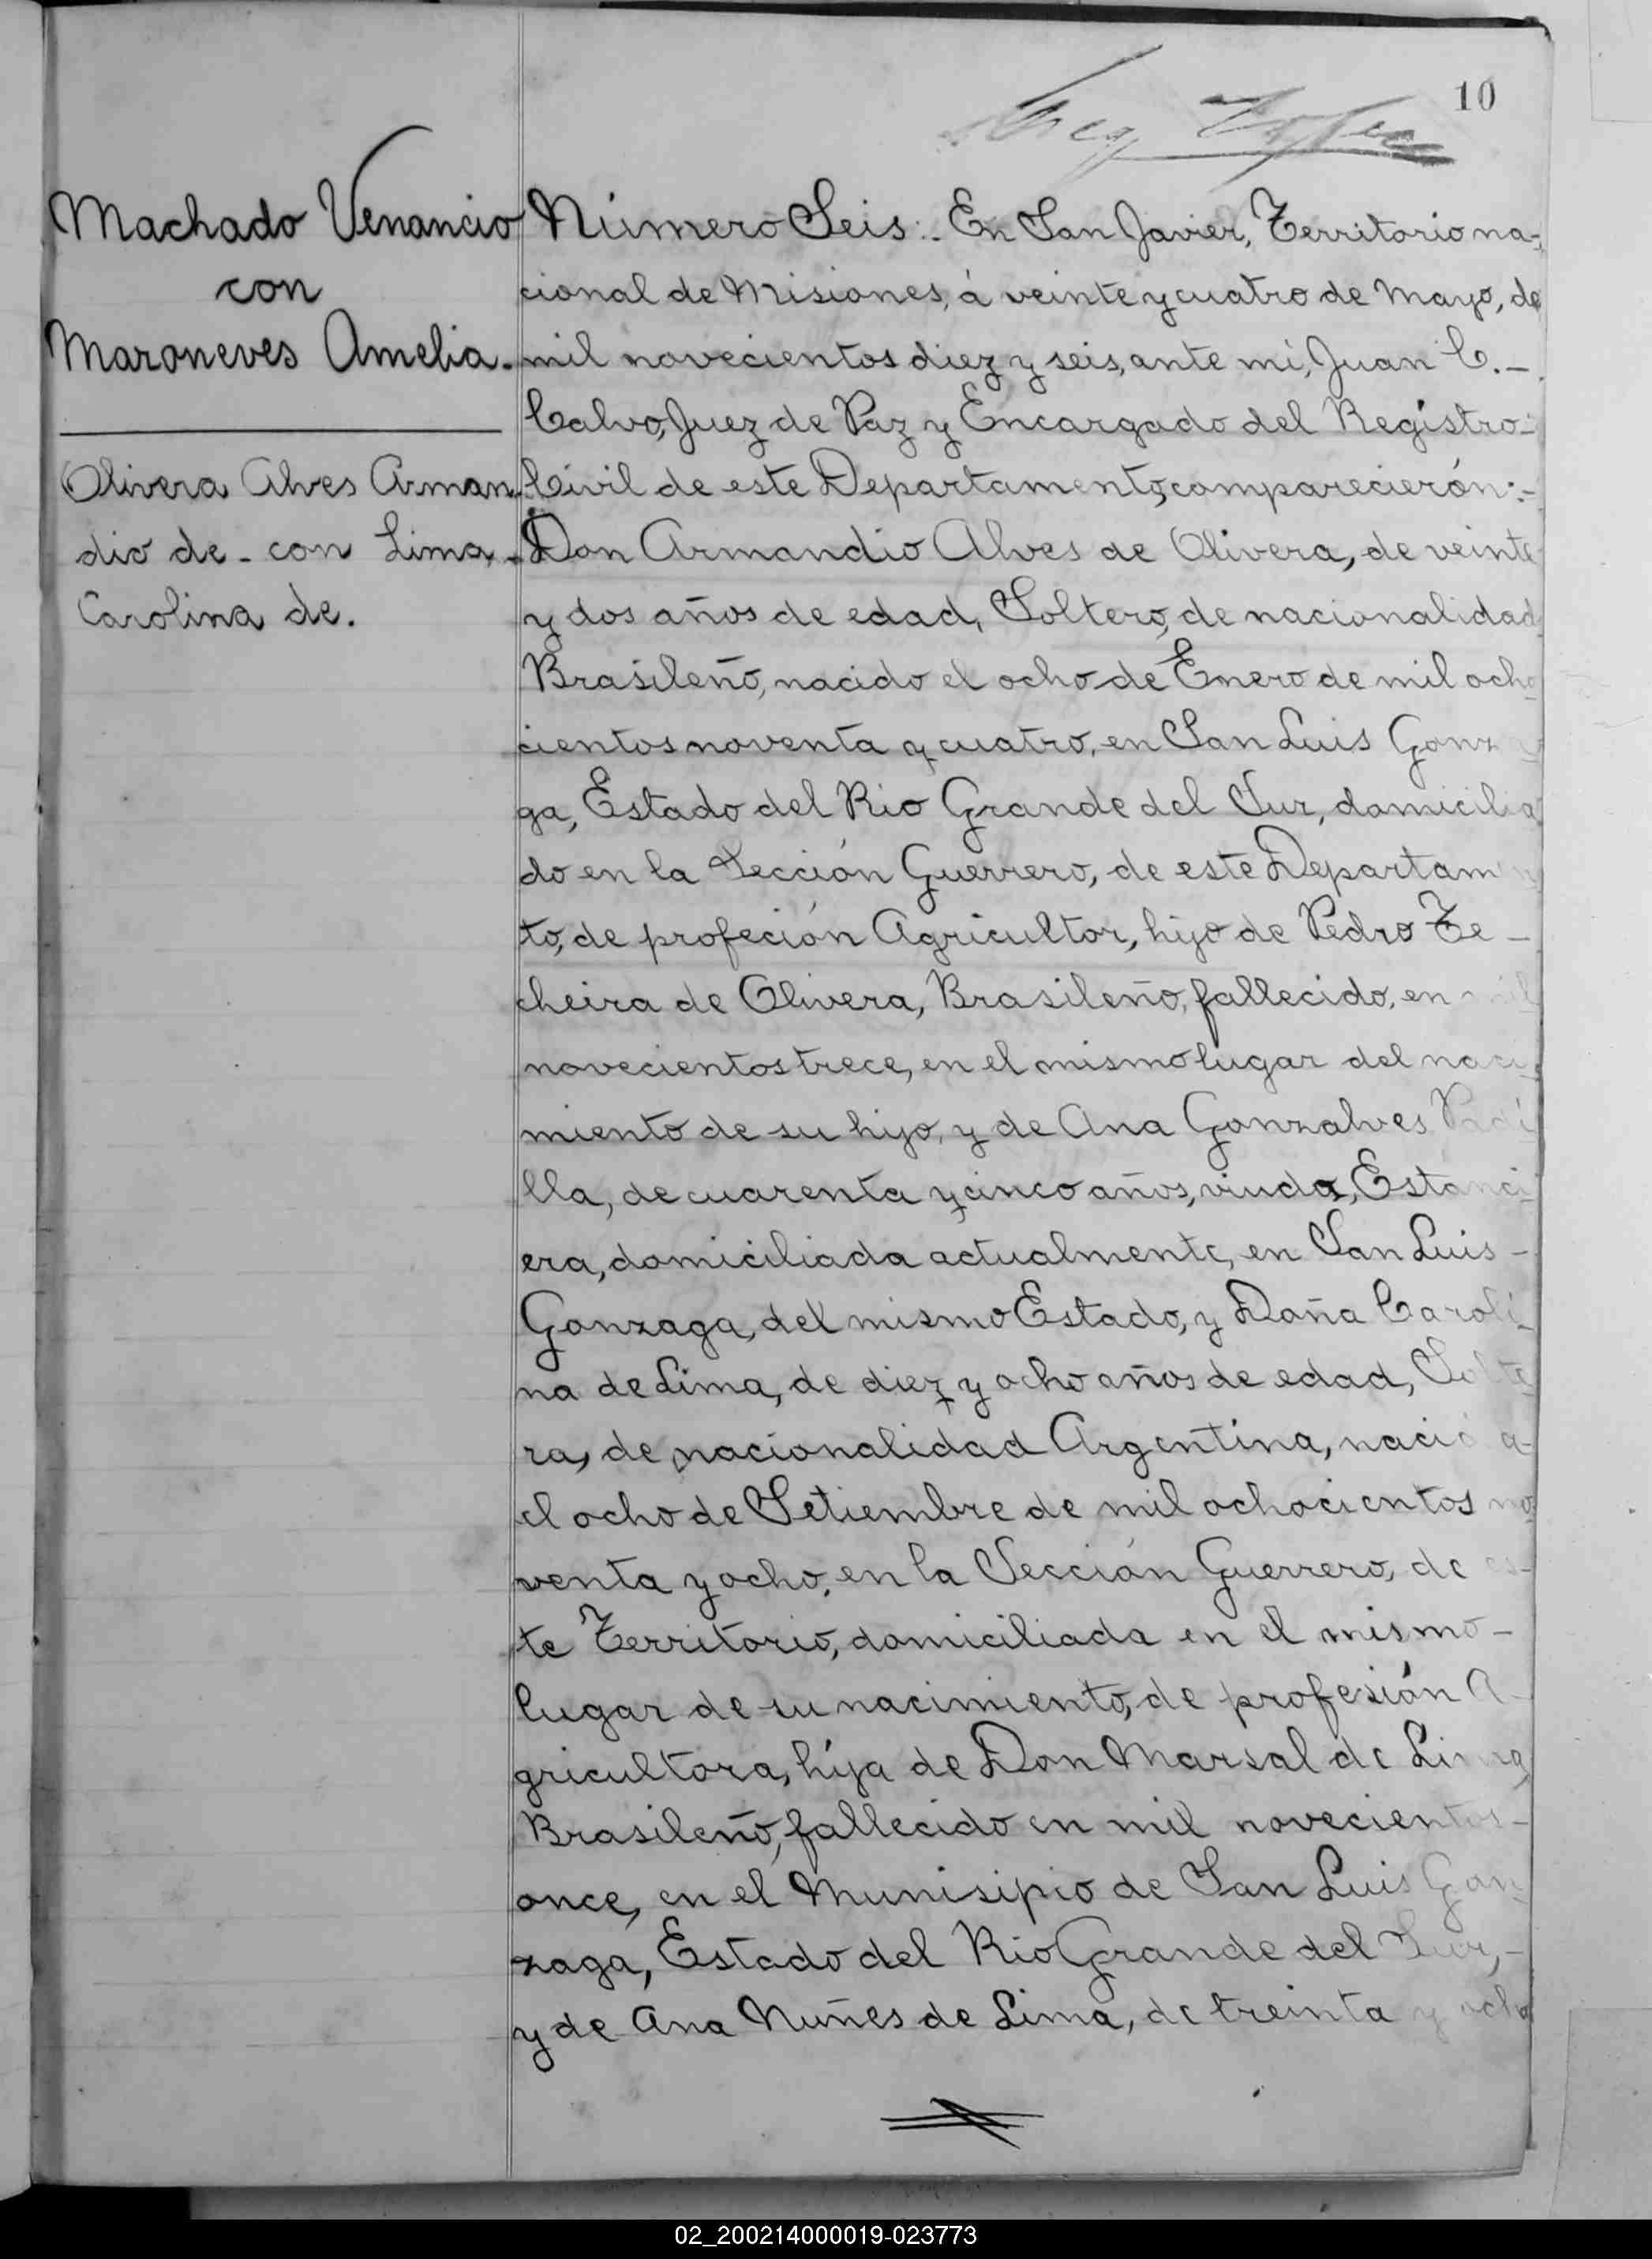 10
Machado Venancio
con
Maroneves Amelia.
Olivera Alves Arman
dio de - con Lima,
Carolina de.
Número Seis:.. En San Javier, Territorio na-
cional de Misiones, á veinte y cuatro de Mayo, de
mil novecientos diez y seis, ante mí, Juan C. -
Calvo, Juez de Paz y Encargado del Registro-
Civil de este Departamento, comparecierón:-
Don Armandio Alves de Olivera, de veinte
y dos años de edad, Soltero, de nacionalidad
Brasileño, nacido el ocho de Enero de mil ocho
cientos noventa y cuatro, en San Luis Gonza
ga, Estado del Rio Grande del Sur, domicilia
do en la Sección Guerrero, de este Departamen
to, de profeción Agricultor, hijo de Pedro Te -
cheira de Olivera, Brasileño, fallecido, en mil
novecientos trece, en el mismo lugar del naci-
miento de su hijo, y de Ana Gonzalves Padi
lla, de cuarenta y cinco años, viuda, Estanci-
era, domiciliada actualmente, en San Luis -
Gonzaga, del mismo Estado, y Doña Caroli-
na de Lima, de diez y ocho años de edad, Solte
ra, de nacionalidad Argentina, nacida-
el ocho de Setiembre de mil ochocientos no
venta y ocho, en la Sección Guerrero, de es-
te Territorio, domiciliada en el mismo -
lugar de su nacimiento, de profesión A-
gricultora, hija de Don Marsal de Lima,
Brasileño, fallecido en mil novecientos-
once, en el Munisipio de San Luis Gon-
zaga, Estado del Rio Grande del Sur, -
y de Ana Nuñes de Lima, de treinta y ocho
02_200214000019-023773